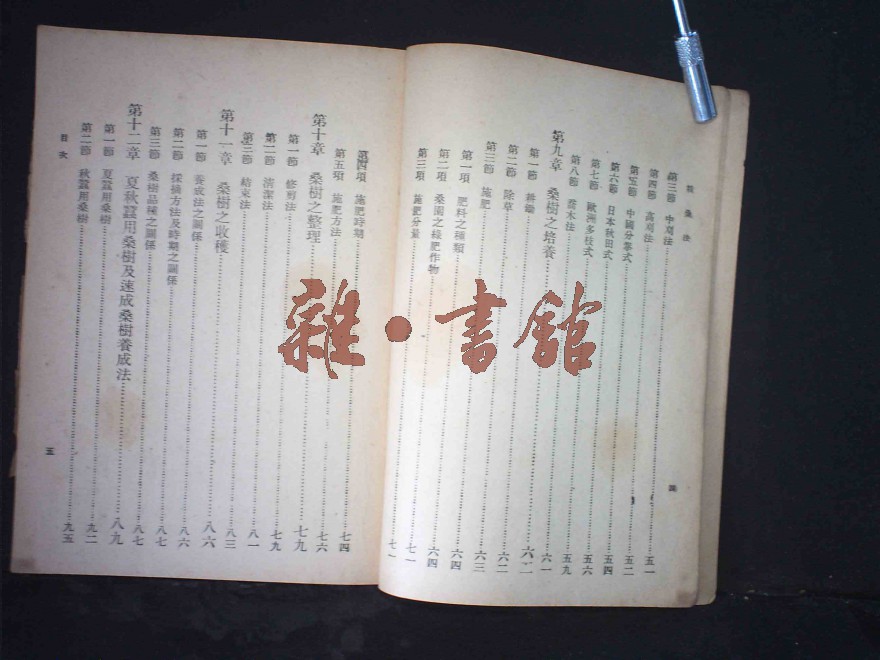 栽桑法
第三節 中刈法 五一
第四節 高刈法 五二
第五節 中國分拳式 五四
第六節 日本秋田式 五六
第七節 歐洲多枝式 五九
第八節 喬木法 六一
第九章 桑樹之培養 六二
第一節 耕鋤
第二節 除草 六二
第三節 施肥 六三
第一項 肥料之種類 六四
第二項 桑園之綠肥作物 六四
第三項 施肥分量 七一
四
第四項 施肥時期 七四
第五項 施肥方法 七六
第十章 桑樹之整理 七九
第一節 修剪法 七九
第二節 清潔法 八一
第三節 結束法 八三
第十一章 桑樹之收穫 八六
第一節 養成法之關係
第二節 採摘方法及時期之關係 八六
第三節 桑樹品種之關係 八七
第十二章 夏秋蠶用桑樹及速成桑樹養成法 八九
第一節 夏蠶用桑樹 九二
第二節 秋蠶用桑樹 九五
目次
五
雜·書館